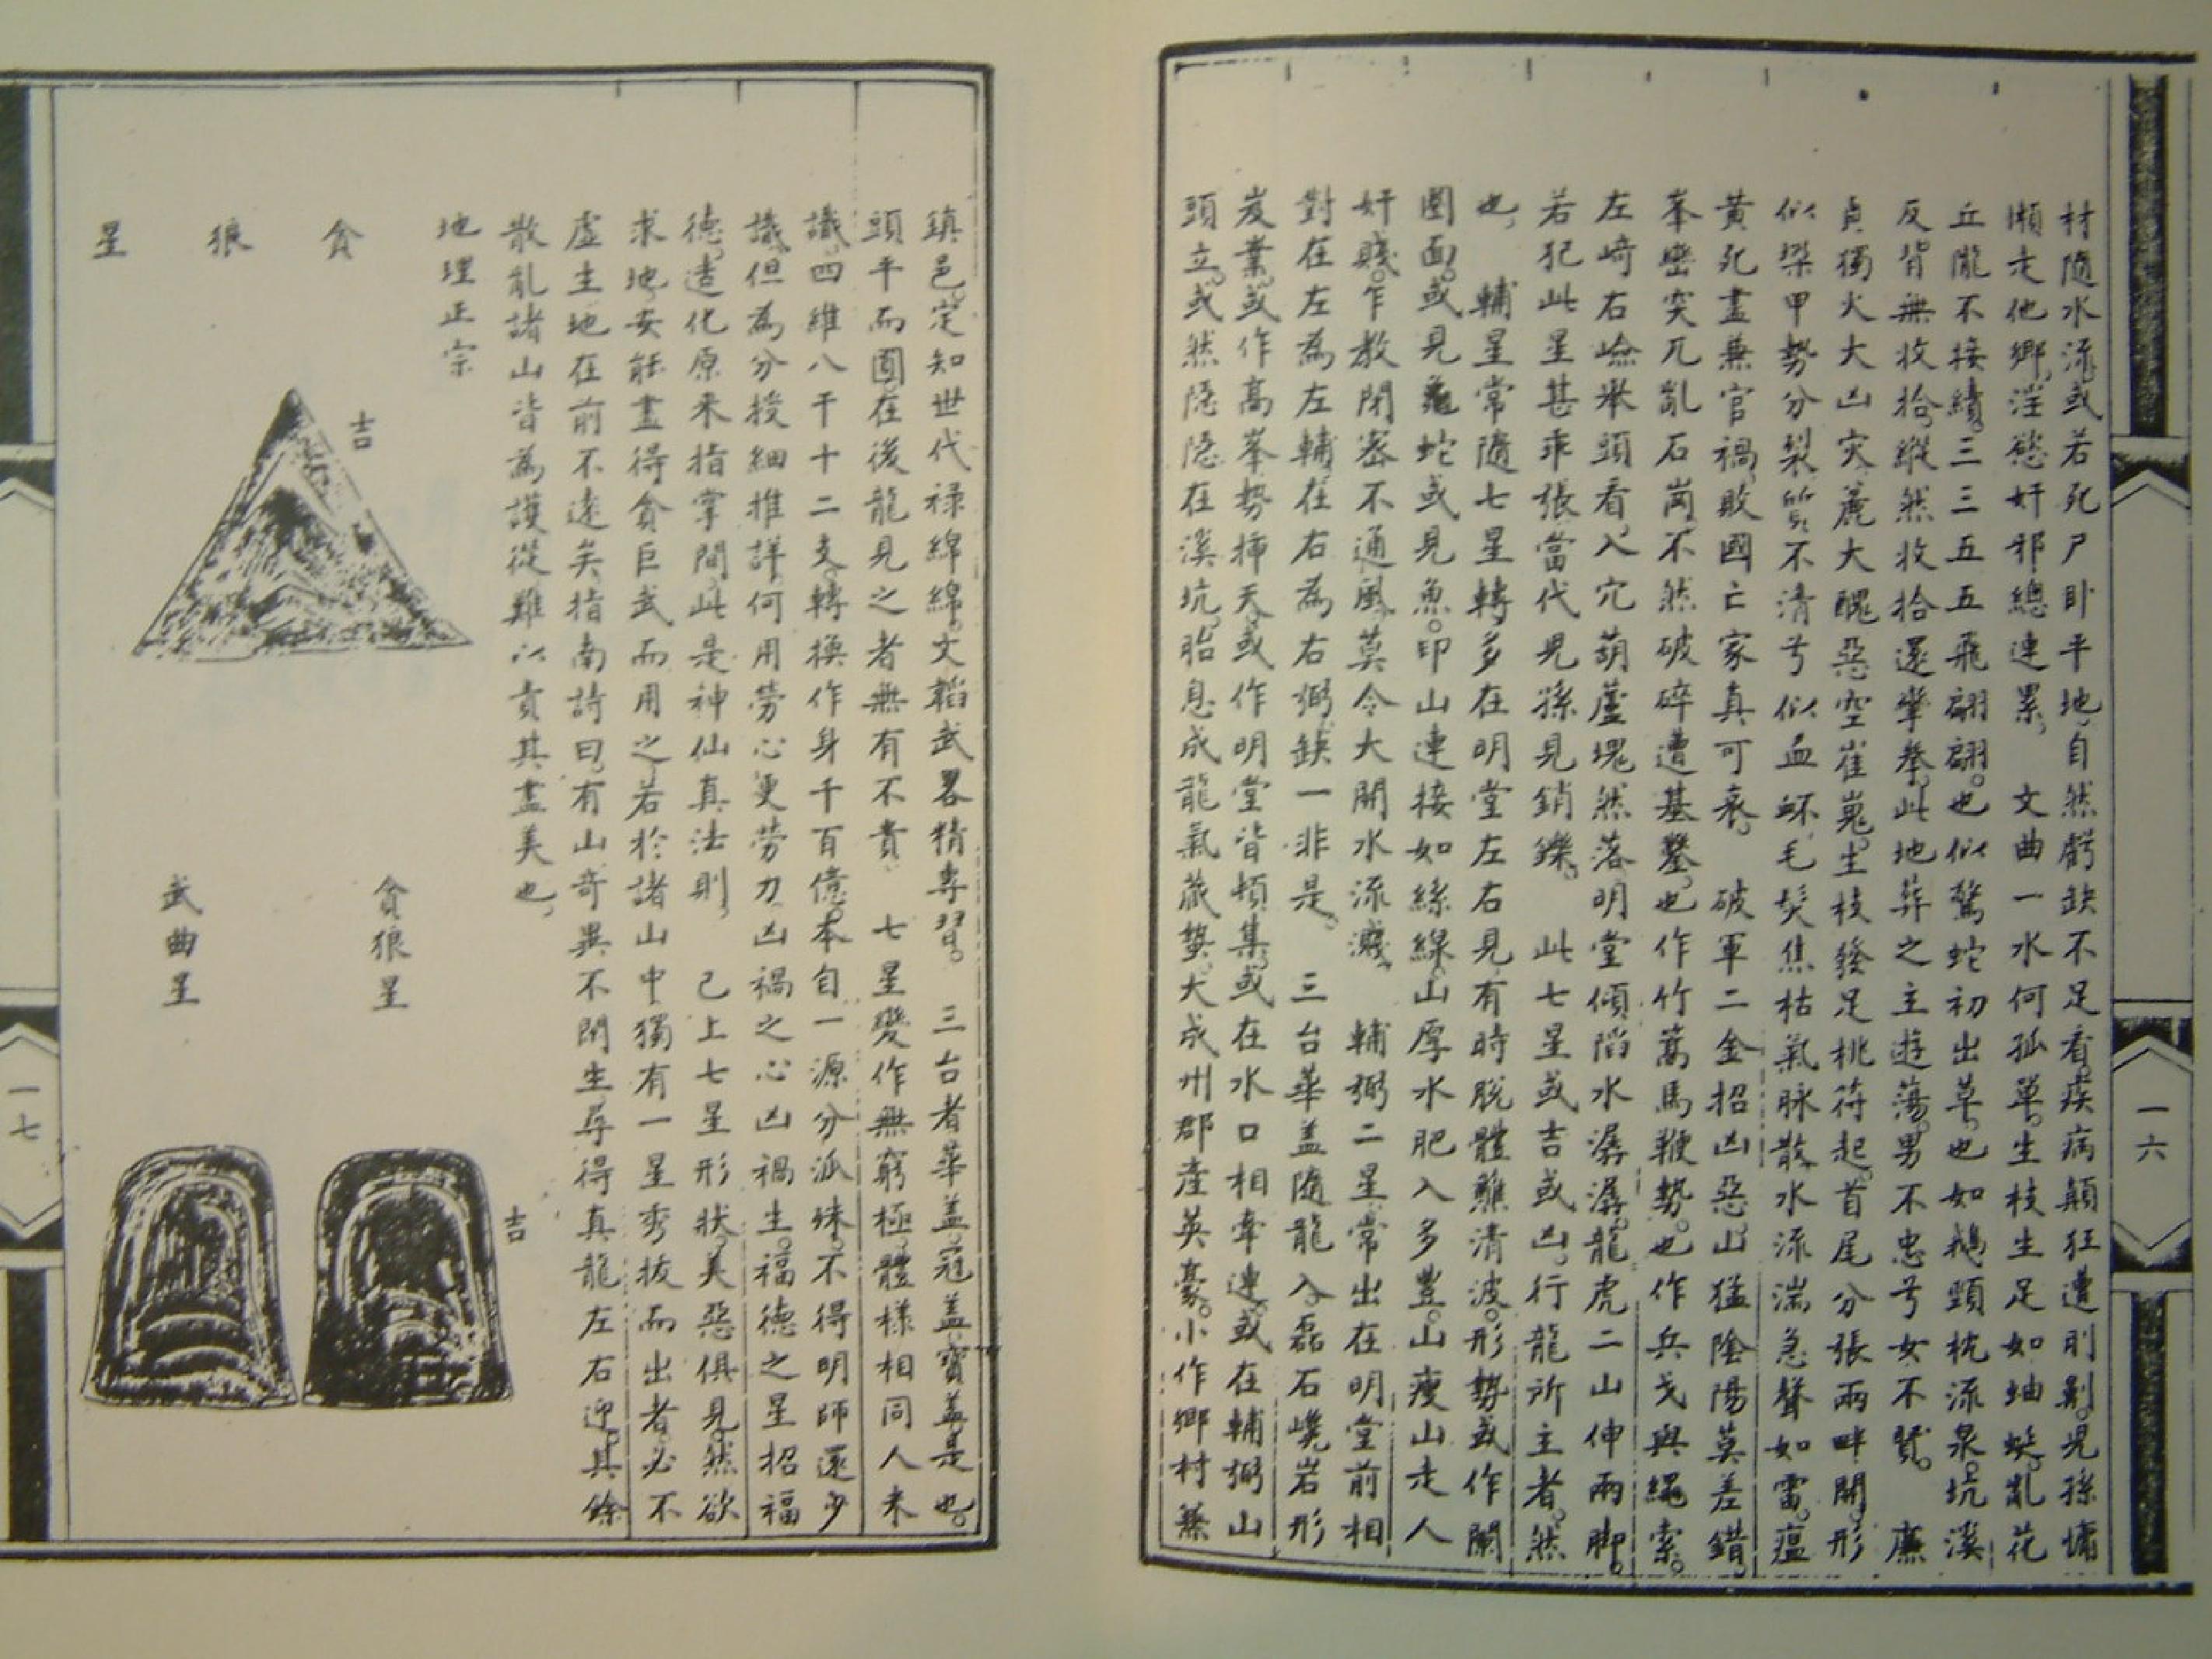 材隨水流或若死尸卧平地自然虧缺不足看疾病顛狂遭刖劓兒孫慵
懶走他鄉淫慾奸邪總連累 文曲一水何孤單生枝生足如蚰蜒亂花
丘隴不接續三三五五飛翩翩也似驚蛇初出草也如鵝頸枕流泉坑溪
反背無收拾縱然收拾還攣拳此地葬之主遊蕩男不忠兮女不賢 廉
貞獨火大山災麄大醜惡空崔嵬生枝發足桃符起首尾分張兩畔開形
似梁甲勢分裂質不清兮似血衃毛髮焦枯氣脉散水流湍急聲如雷瘟
黄死盡兼官禍敗國亡家真可哀 破軍二金招凶惡山猛陰陽莫差錯
峯巒突兀亂石崗不然破碎遭基鑿也作竹篙馬鞭勢也作兵戈與繩索
左﨑右嶮岽頭看入穴葫蘆塊然落明堂傾陷水潺潺龍虎二山伸兩脚
若犯此星甚乖張當代見孫見銷鑠 此七星或吉或凶行龍所主者然
也 輔星常隨七星轉多在明堂左右見有時脫體蘸清波形勢或作闌
圈面或見龜蛇或見魚印山連接如絲線山厚水肥入多豊山瘦山走人
奸賤乍教閉密不通風莫令大開水流濺 輔弼二星常出在明堂前相
對在左為左輔在右為右弼缺一非是 三台華盖隨龍入磊石巉岩形
岌業或作高峯勢揷天或作明堂皆頓集或在水口相牽連或在輔弼山
頭立或然隱隱在溪坑胎息成龍氣藏蟄大成州郡産英豪小作鄉村兼
鎮邑定知世代禄綿綿文韜武畧精專習 三台者華盖冠盖寶盖是也
頭平而圓在後龍見之者無有不貴 七星變作無窮極體樣相同人未
識四維八干十二支轉換作身千百億本自一源分派殊不得明師遂少
識但為分授細推詳何用勞心更勞力凶禍之心凶禍生福德之星招福
德造化原來指掌間此是神仙真法則 已上七星形狀美惡俱見然欲
求地安能盡得貪巨武而用之若於諸山中獨有一星秀拔而出者必不
虛生地在前不遠矣指南詩曰有山奇異不閉生尋得真龍左右迎其餘
散亂諸山皆為護從難以責其盡美也
地理正宗
貪狼星
吉
貪狼星
吉
武曲星
一六
一七